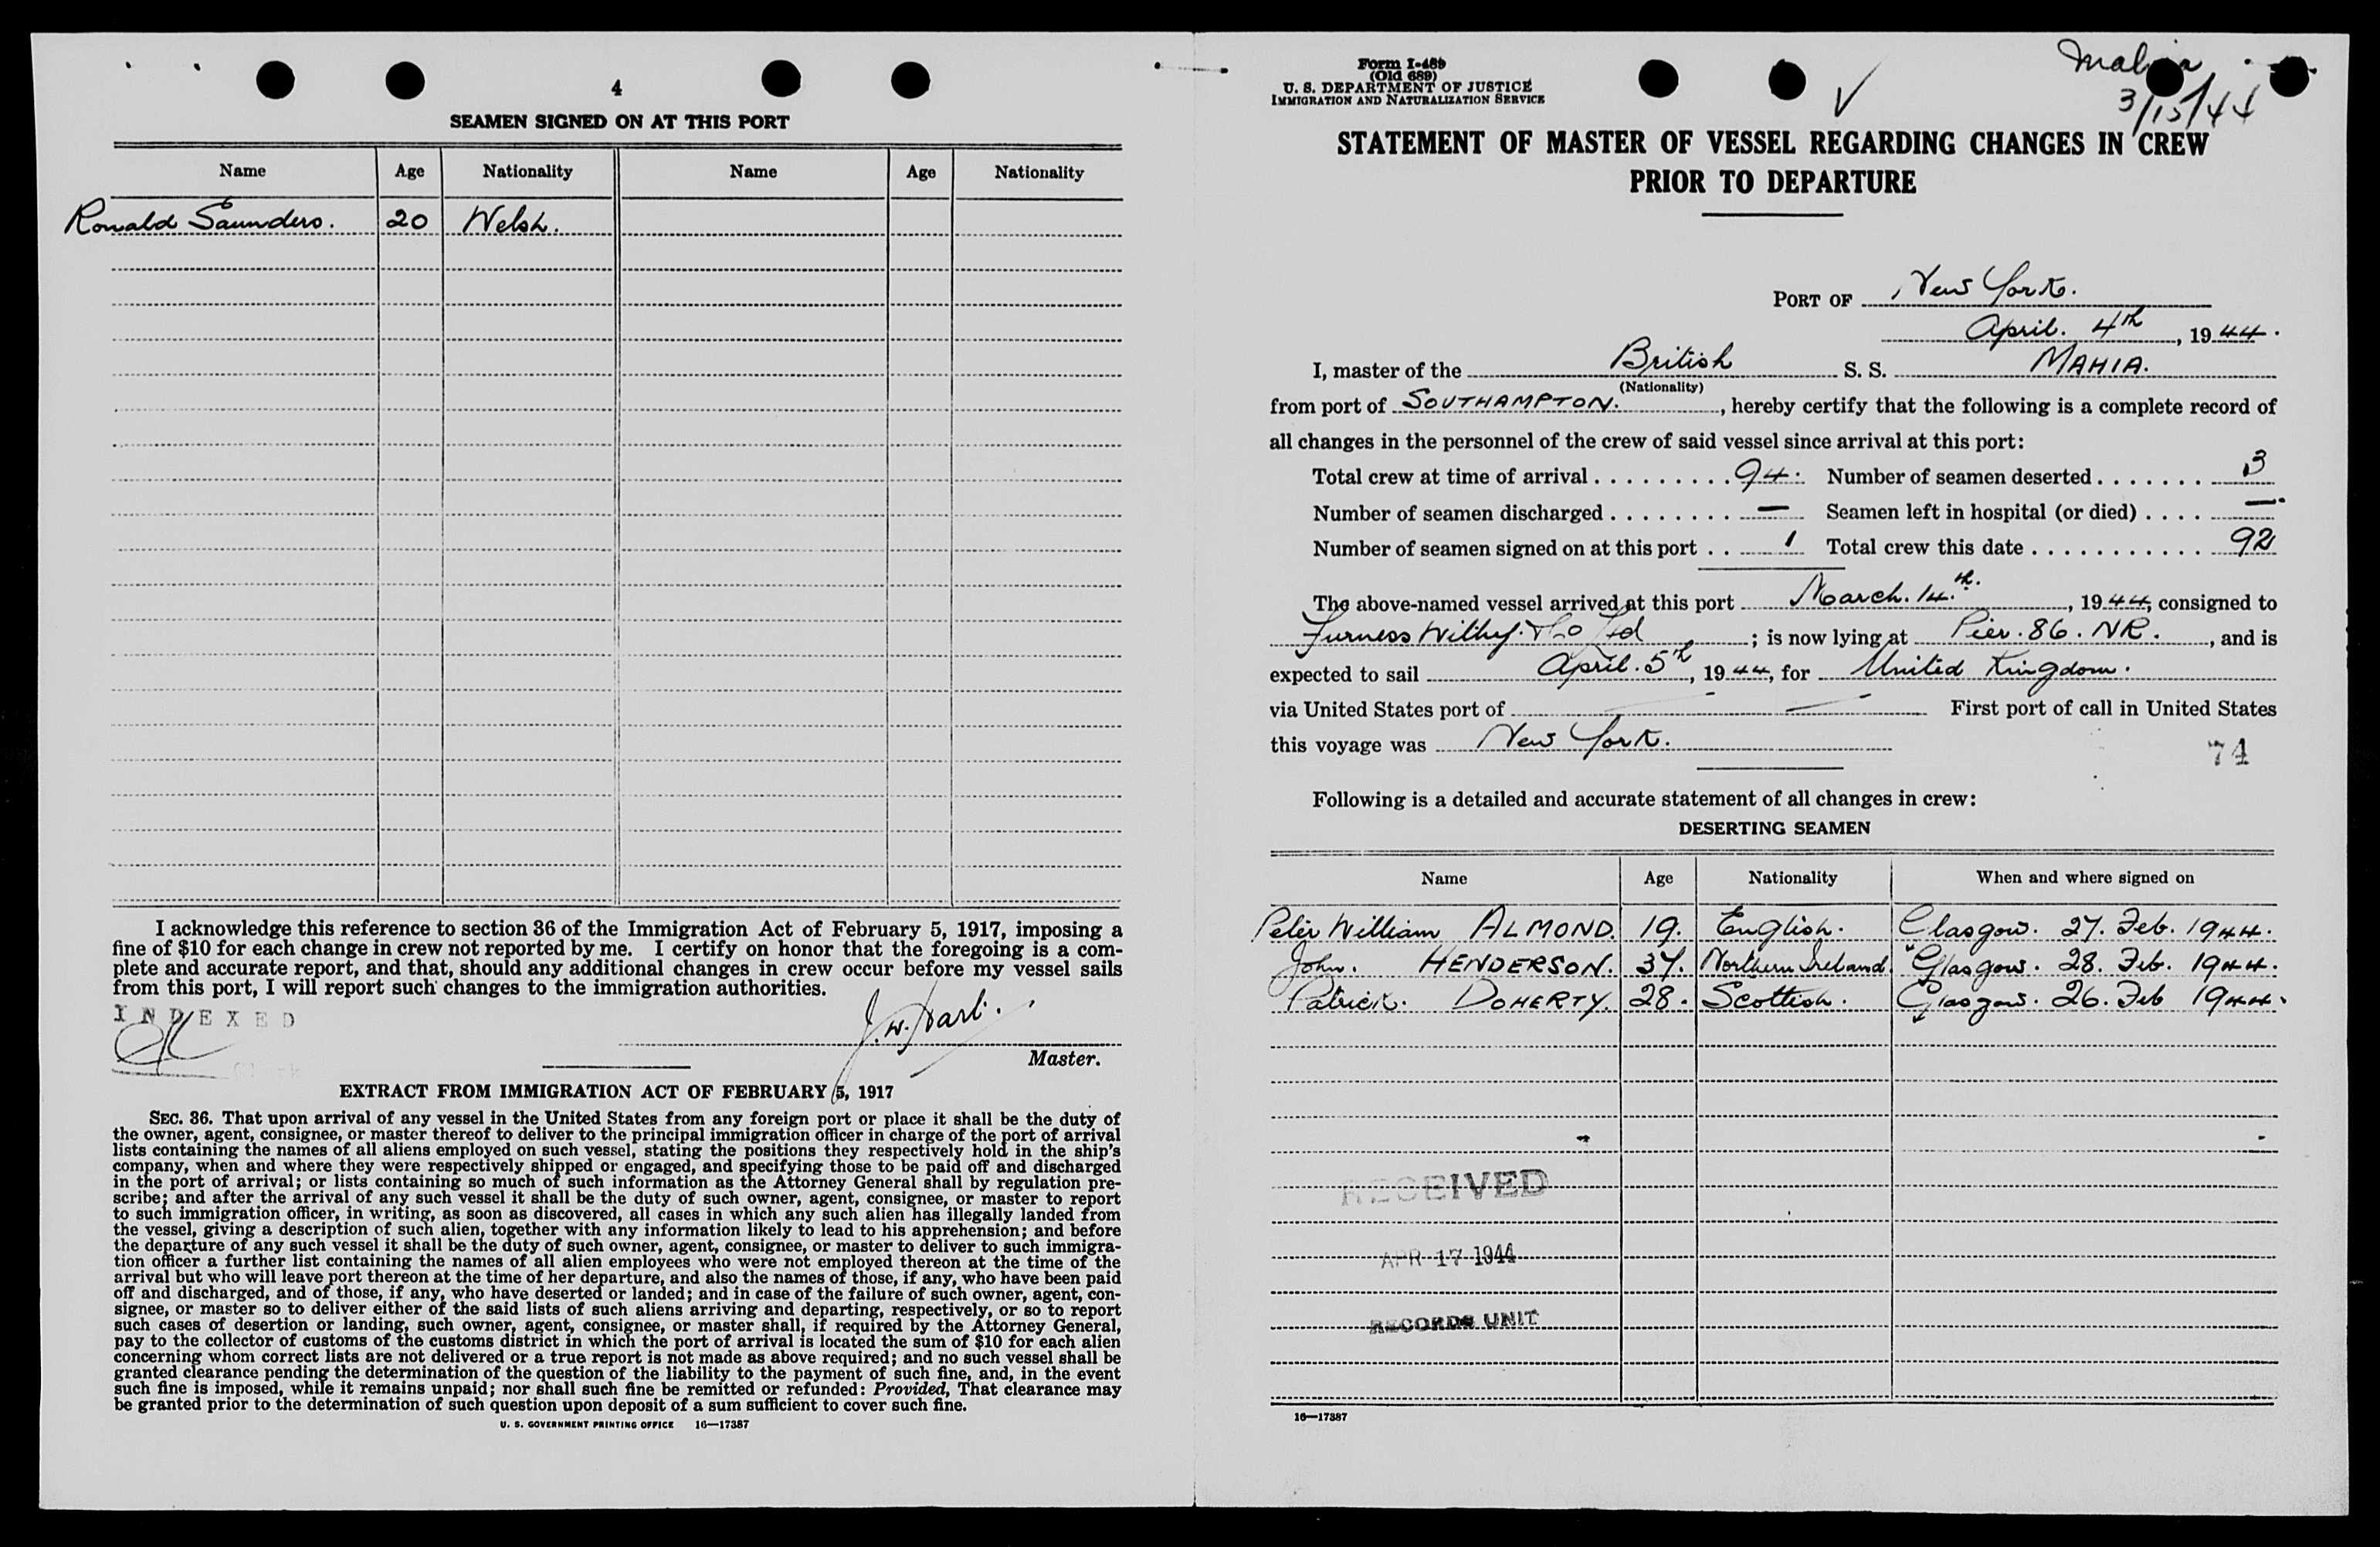 4
SEAMEN SIGNED ON AT THIS PORT
Name Age Nationality Name Age Nationality
Ronald Saunders. 20 Welsh.
I acknowledge this reference to section 36 of the Immigration Act of February 5, 1917, imposing a
fine of $10 for each change in crew not reported by me. I certify on honor that the foregoing is a com-
plete and accurate report, and that, should any additional changes in crew occur before my vessel sails
from this port, I will report such changes to the immigration authorities.
INDEXED
J. W. Hart.
Master.
EXTRACT FROM IMMIGRATION ACT OF FEBRUARY 5, 1917
SEC. 36. That upon arrival of any vessel in the United States from any foreign port or place it shall be the duty of
the owner, agent, consignee, or master thereof to deliver to the principal immigration officer in charge of the port of arrival
lists containing the names of all aliens employed on such vessel, stating the positions they respectively hold in the ship's
company, when and where they were respectively shipped or engaged, and specifying those to be paid off and discharged
in the port of arrival; or lists containing so much of such information as the Attorney General shall by regulation pre-
scribe; and after the arrival of any such vessel it shall be the duty of such owner, agent, consignee, or master to report
to such immigration officer, in writing, as soon as discovered, all cases in which any such alien has illegally landed from
the vessel, giving a description of such alien, together with any information likely to lead to his apprehension; and before
the departure of any such vessel it shall be the duty of such owner, agent, consignee, or master to deliver to such immigra-
tion officer a further list containing the names of all alien employees who were not employed thereon at the time of the
arrival but who will leave port thereon at the time of her departure, and also the names of those, if any, who have been paid
off and discharged, and of those, if any, who have deserted or landed; and in case of the failure of such owner, agent, con-
signee, or master so to deliver either of the said lists of such aliens arriving and departing, respectively, or so to report
such cases of desertion or landing, such owner, agent, consignee, or master shall, if required by the Attorney General,
pay to the collector of customs of the customs district in which the port of arrival is located the sum of $10 for each alien
concerning whom correct lists are not delivered or a true report is not made as above required; and no such vessel shall be
granted clearance pending the determination of the question of the liability to the payment of such fine, and, in the event
such fine is imposed, while it remains unpaid; nor shall such fine be remitted or refunded: Provided, That clearance may
be granted prior to the determination of such question upon deposit of a sum sufficient to cover such fine.
U. S. GOVERNMENT PRINTING OFFICE 16—17387
Form I-489
(Old 689)
U. S. DEPARTMENT OF JUSTICE
IMMIGRATION AND NATURALIZATION SERVICE
3/15/44
STATEMENT OF MASTER OF VESSEL REGARDING CHANGES IN CREW
PRIOR TO DEPARTURE
PORT OF New York.
April. 4th, 1944.
I, master of the British S. S. MAHIA.
(Nationality)
from port of SOUTHAMPTON., hereby certify that the following is a complete record of
all changes in the personnel of the crew of said vessel since arrival at this port:
Total crew at time of arrival 94. Number of seamen deserted 3
Number of seamen discharged — Seamen left in hospital (or died) —
Number of seamen signed on at this port 1 Total crew this date 92
The above-named vessel arrived at this port March. 14.th., 1944, consigned to
Furness Withy. & Co Ltd; is now lying at Pier. 86. NR., and is
expected to sail April. 5th, 1944, for United Kingdom.
via United States port of — — First port of call in United States
this voyage was New York.
74
Following is a detailed and accurate statement of all changes in crew:
DESERTING SEAMEN
Name Age Nationality When and where signed on
Peter William ALMOND. 19. English. Glasgow. 27. Feb. 1944.
John. HENDERSON. 37. Northern Ireland. Glasgow. 28. Feb. 1944.
Patrick. DOHERTY. 28. Scottish. Glasgow. 26. Feb 1944.
RECEIVED
APR 17 1944
RECORDS UNIT
16—17387